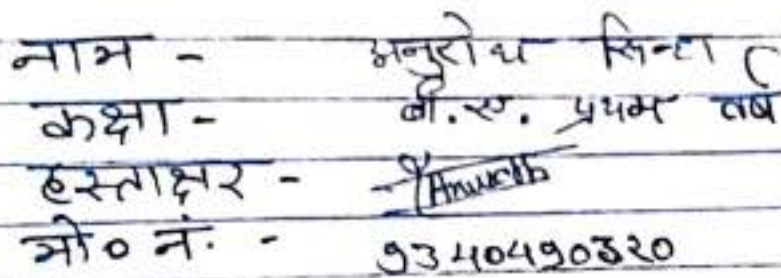 नाम - अनुरोध सिन्हा
कक्षा - बी.ए. प्रथम वर्ष
हस्ताक्षर - Anurodh
मो० नं. - 9340490320